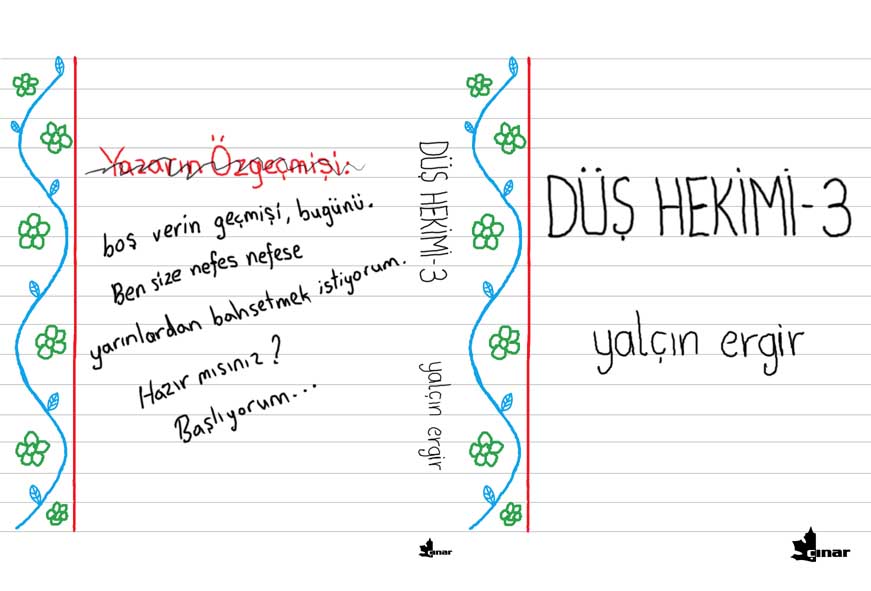 Yazarın Özgeçmişi:
boş verin geçmişi, bugünü.
Ben size nefes nefese
yarınlardan bahsetmek istiyorum.
Hazır mısınız?
Başlıyorum...
DÜŞ HEKİMİ-3
yalçın ergir
çınar
DÜŞ HEKİMİ-3
yalçın ergir
çınar